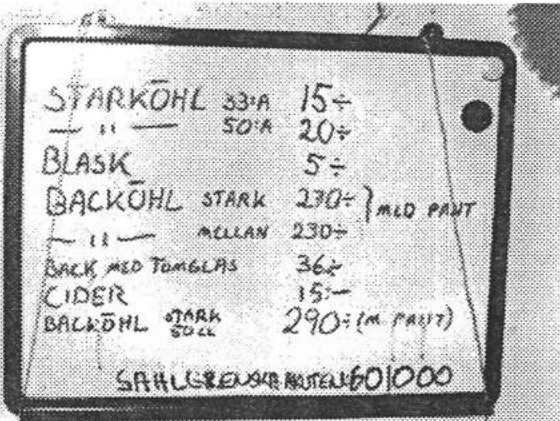 STARKÖHL 33:A 15÷
— " — 50:A 20÷
BLASK 5÷
BACKÖHL STARK 270÷ } MED PANT
— " — MELLAN 230÷
BACK MED TOMGLAS 36÷
CIDER 15:—
BACKÖHL STARK 50CL 290÷ (M PANT)
SAHLGRENSKA AKUTEN 601000